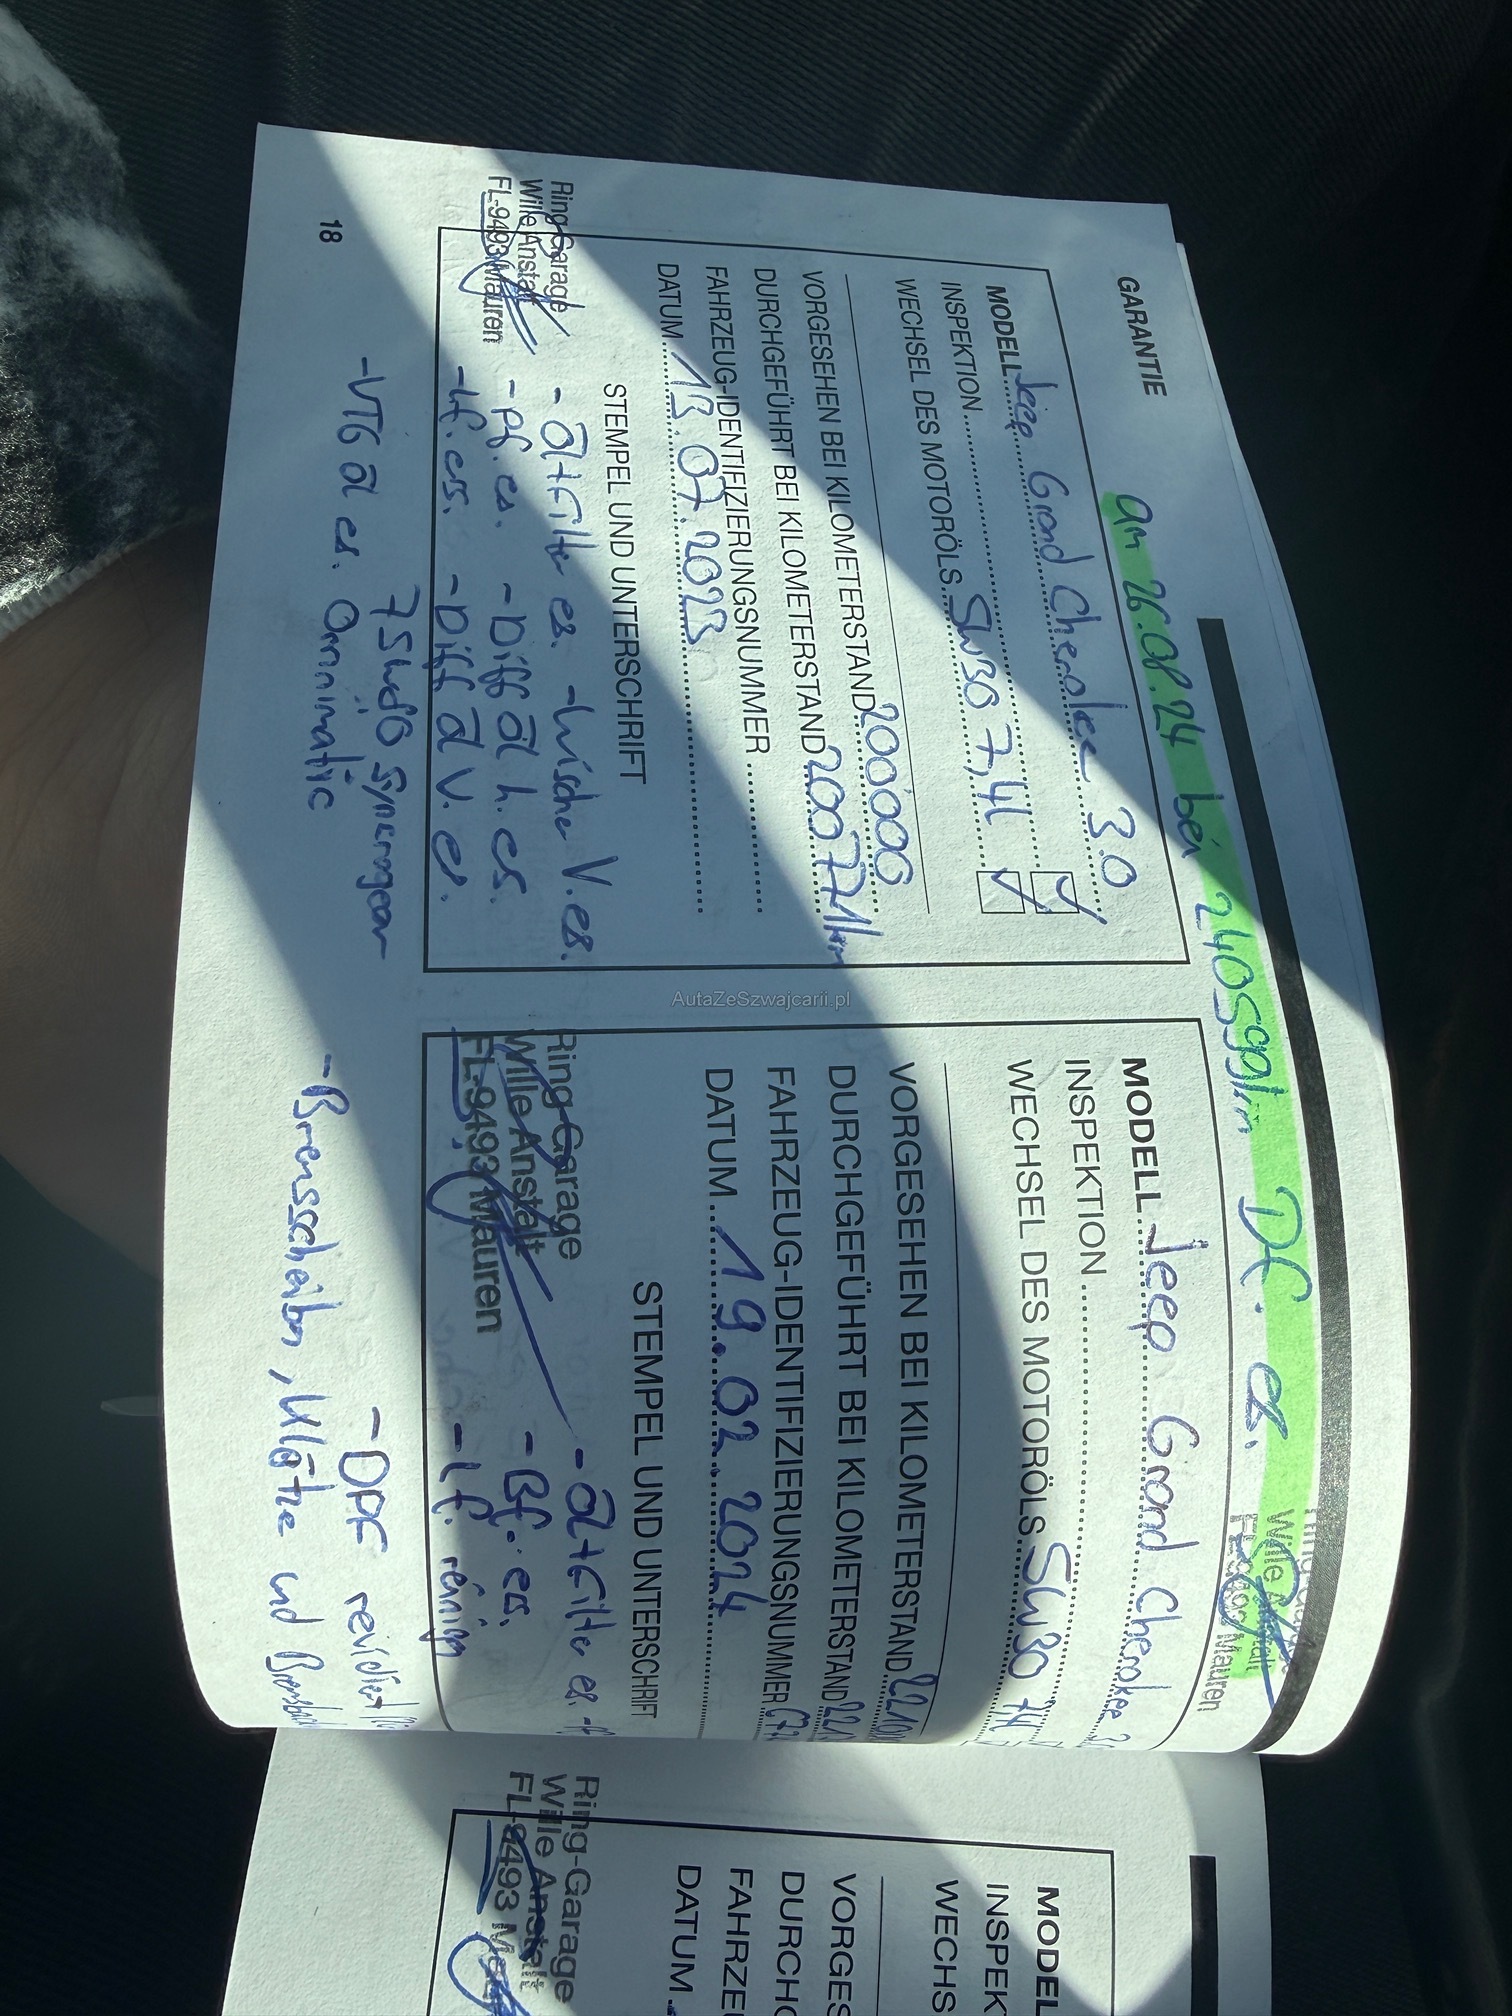 GARANTIE
am 26.08.24 bei 240591km DF. es.
Wille Anstalt
FL-9493 Mauren
MODELL Jeep Grand Cherokee 3.0
INSPEKTION
WECHSEL DES MOTORÖLS 5W30 7,4l
VORGESEHEN BEI KILOMETERSTAND 200'000
DURCHGEFÜHRT BEI KILOMETERSTAND 200771km
FAHRZEUG-IDENTIFIZIERUNGSNUMMER
DATUM 13.07.2023
STEMPEL UND UNTERSCHRIFT
Ring-Garage
Wille Anstalt
FL-9493 Mauren
- Öl+Filter es. - Wischer V. es.
- Pf. es. - Diff Öl h. es.
- Lf. es. - Diff Öl V. es.
75W80 Syncrogear
- VTG Öl es. Omnimatic
18
MODELL Jeep Grand Cherokee
INSPEKTION
WECHSEL DES MOTORÖLS 5W30
VORGESEHEN BEI KILOMETERSTAND
DURCHGEFÜHRT BEI KILOMETERSTAND
FAHRZEUG-IDENTIFIZIERUNGSNUMMER
DATUM 19.02.2024
STEMPEL UND UNTERSCHRIFT
Ring-Garage
Wille Anstalt
FL-9493 Mauren
- Öl+Filter es
- Bf. es.
- Lf. reinign
- DPF revidiert
- Bremsscheiben, Klötze und
MODEL
INSPEK
WECHS
VORGES
DURCHG
FAHRZE
DATUM
Ring-Garage
Wille Anstalt
FL-9493
AutaZeSzwajcarii.pl